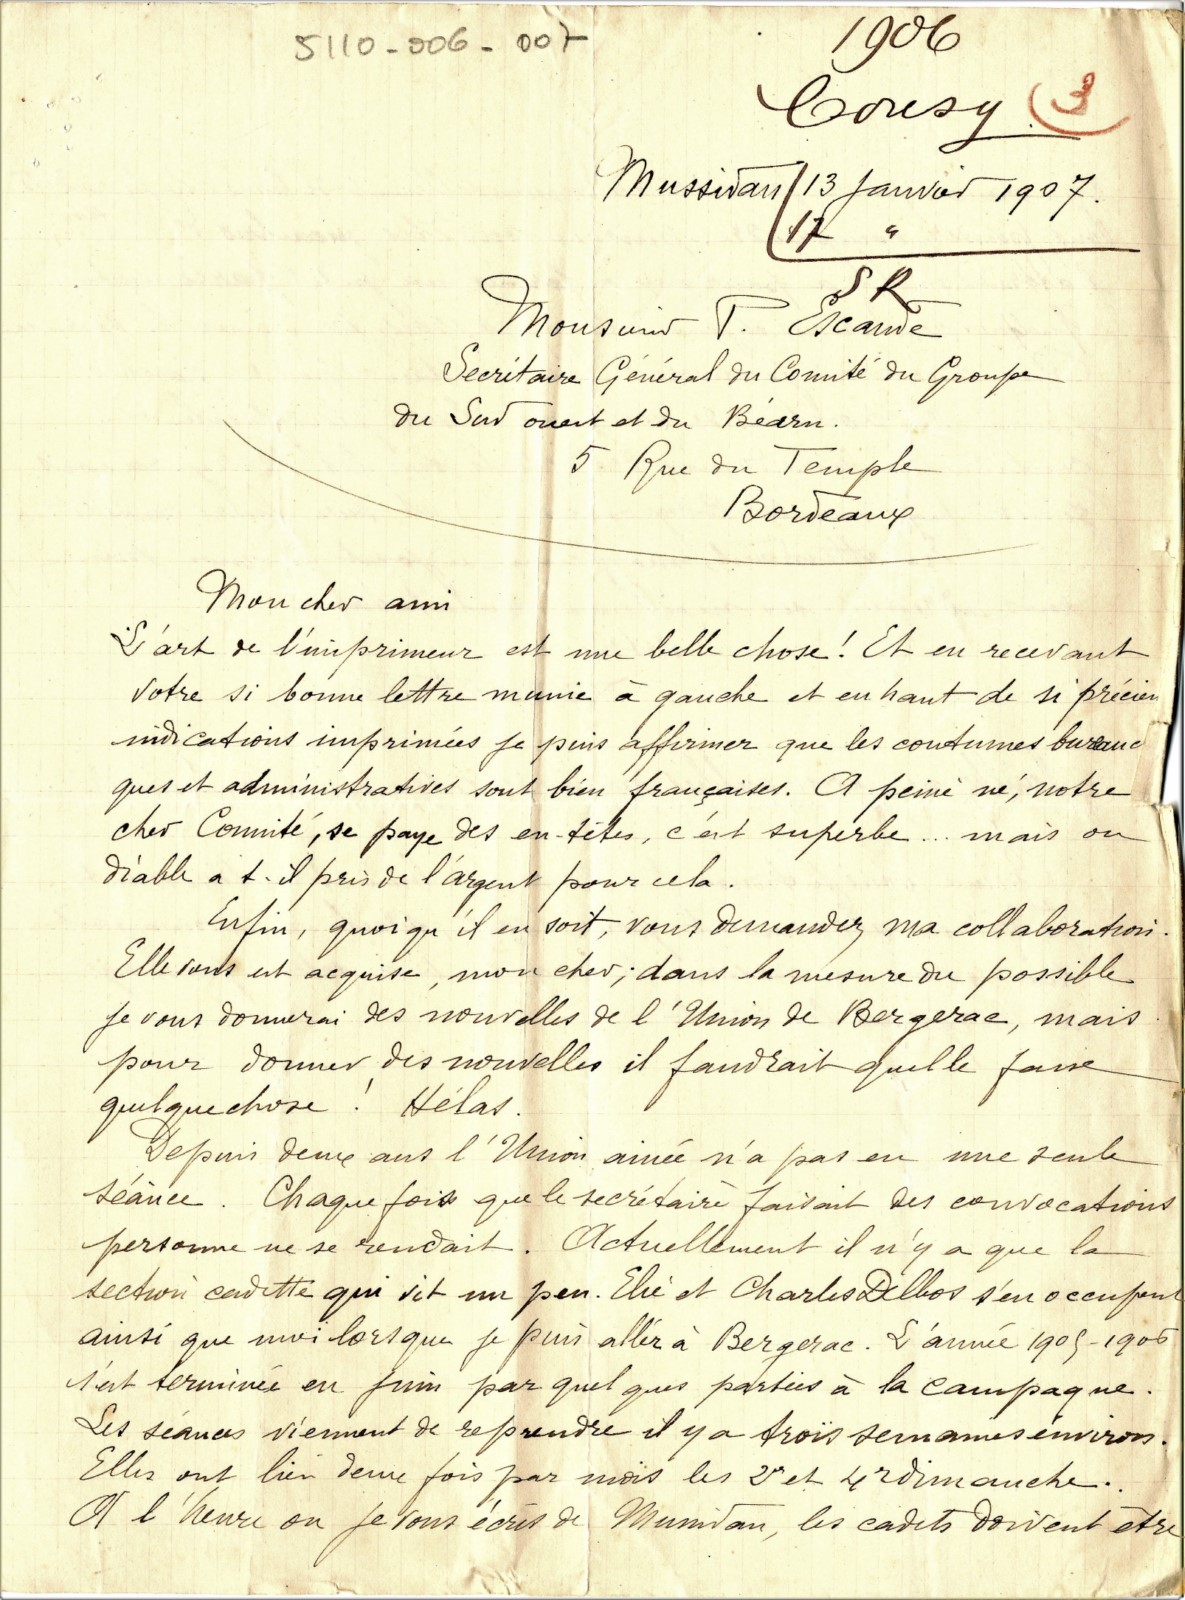 5110-006-007
1906
Coresy 3
Mussidan 13 Janvier 1907.
17 "
SR
Monsieur P. Escande
Secrétaire Général du Comité du Groupe
du Sud ouest et du Béarn.
5 Rue du Temple
Bordeaux
Mon cher ami
L'art de l'imprimeur est une belle chose! Et en recevant
votre si bonne lettre munie à gauche et en haut de si précieu
indications imprimées je puis affirmer que les coutumes bureauc
ques et administratives sont bien françaises. A peine né, notre
cher Comité, se paye des en-têtes, c'est superbe... mais ou
diable a t-il pris de l'argent pour cela.
Enfin, quoiqu'il en soit, vous demandez ma collaboration.
Elle vous est acquise, mon cher; dans la mesure du possible
je vous donnerai des nouvelles de l'Union de Bergerac, mais
pour donner des nouvelles il faudrait quelle fasse
quelquechose! Hélas.
Depuis deux ans l'Union ainée n'a pas eu une seule
séance. Chaque fois que le secrétaire faisait des convocations
personne ne se rendait. Actuellement il n'y a que la
section cadette qui vit un peu. Elie et Charles Delbos s'en occupent
ainsi que moi lorsque je puis aller à Bergerac. L'année 1905-1906
s'est terminée en Juin par quelques parties à la campagne.
Les séances viennent de reprendre il y a trois semaines environ.
Elles ont lieu deux fois par mois les 2e et 4e dimanche.
A l'heure ou je vous écris de Mussidan, les cadets doivent être